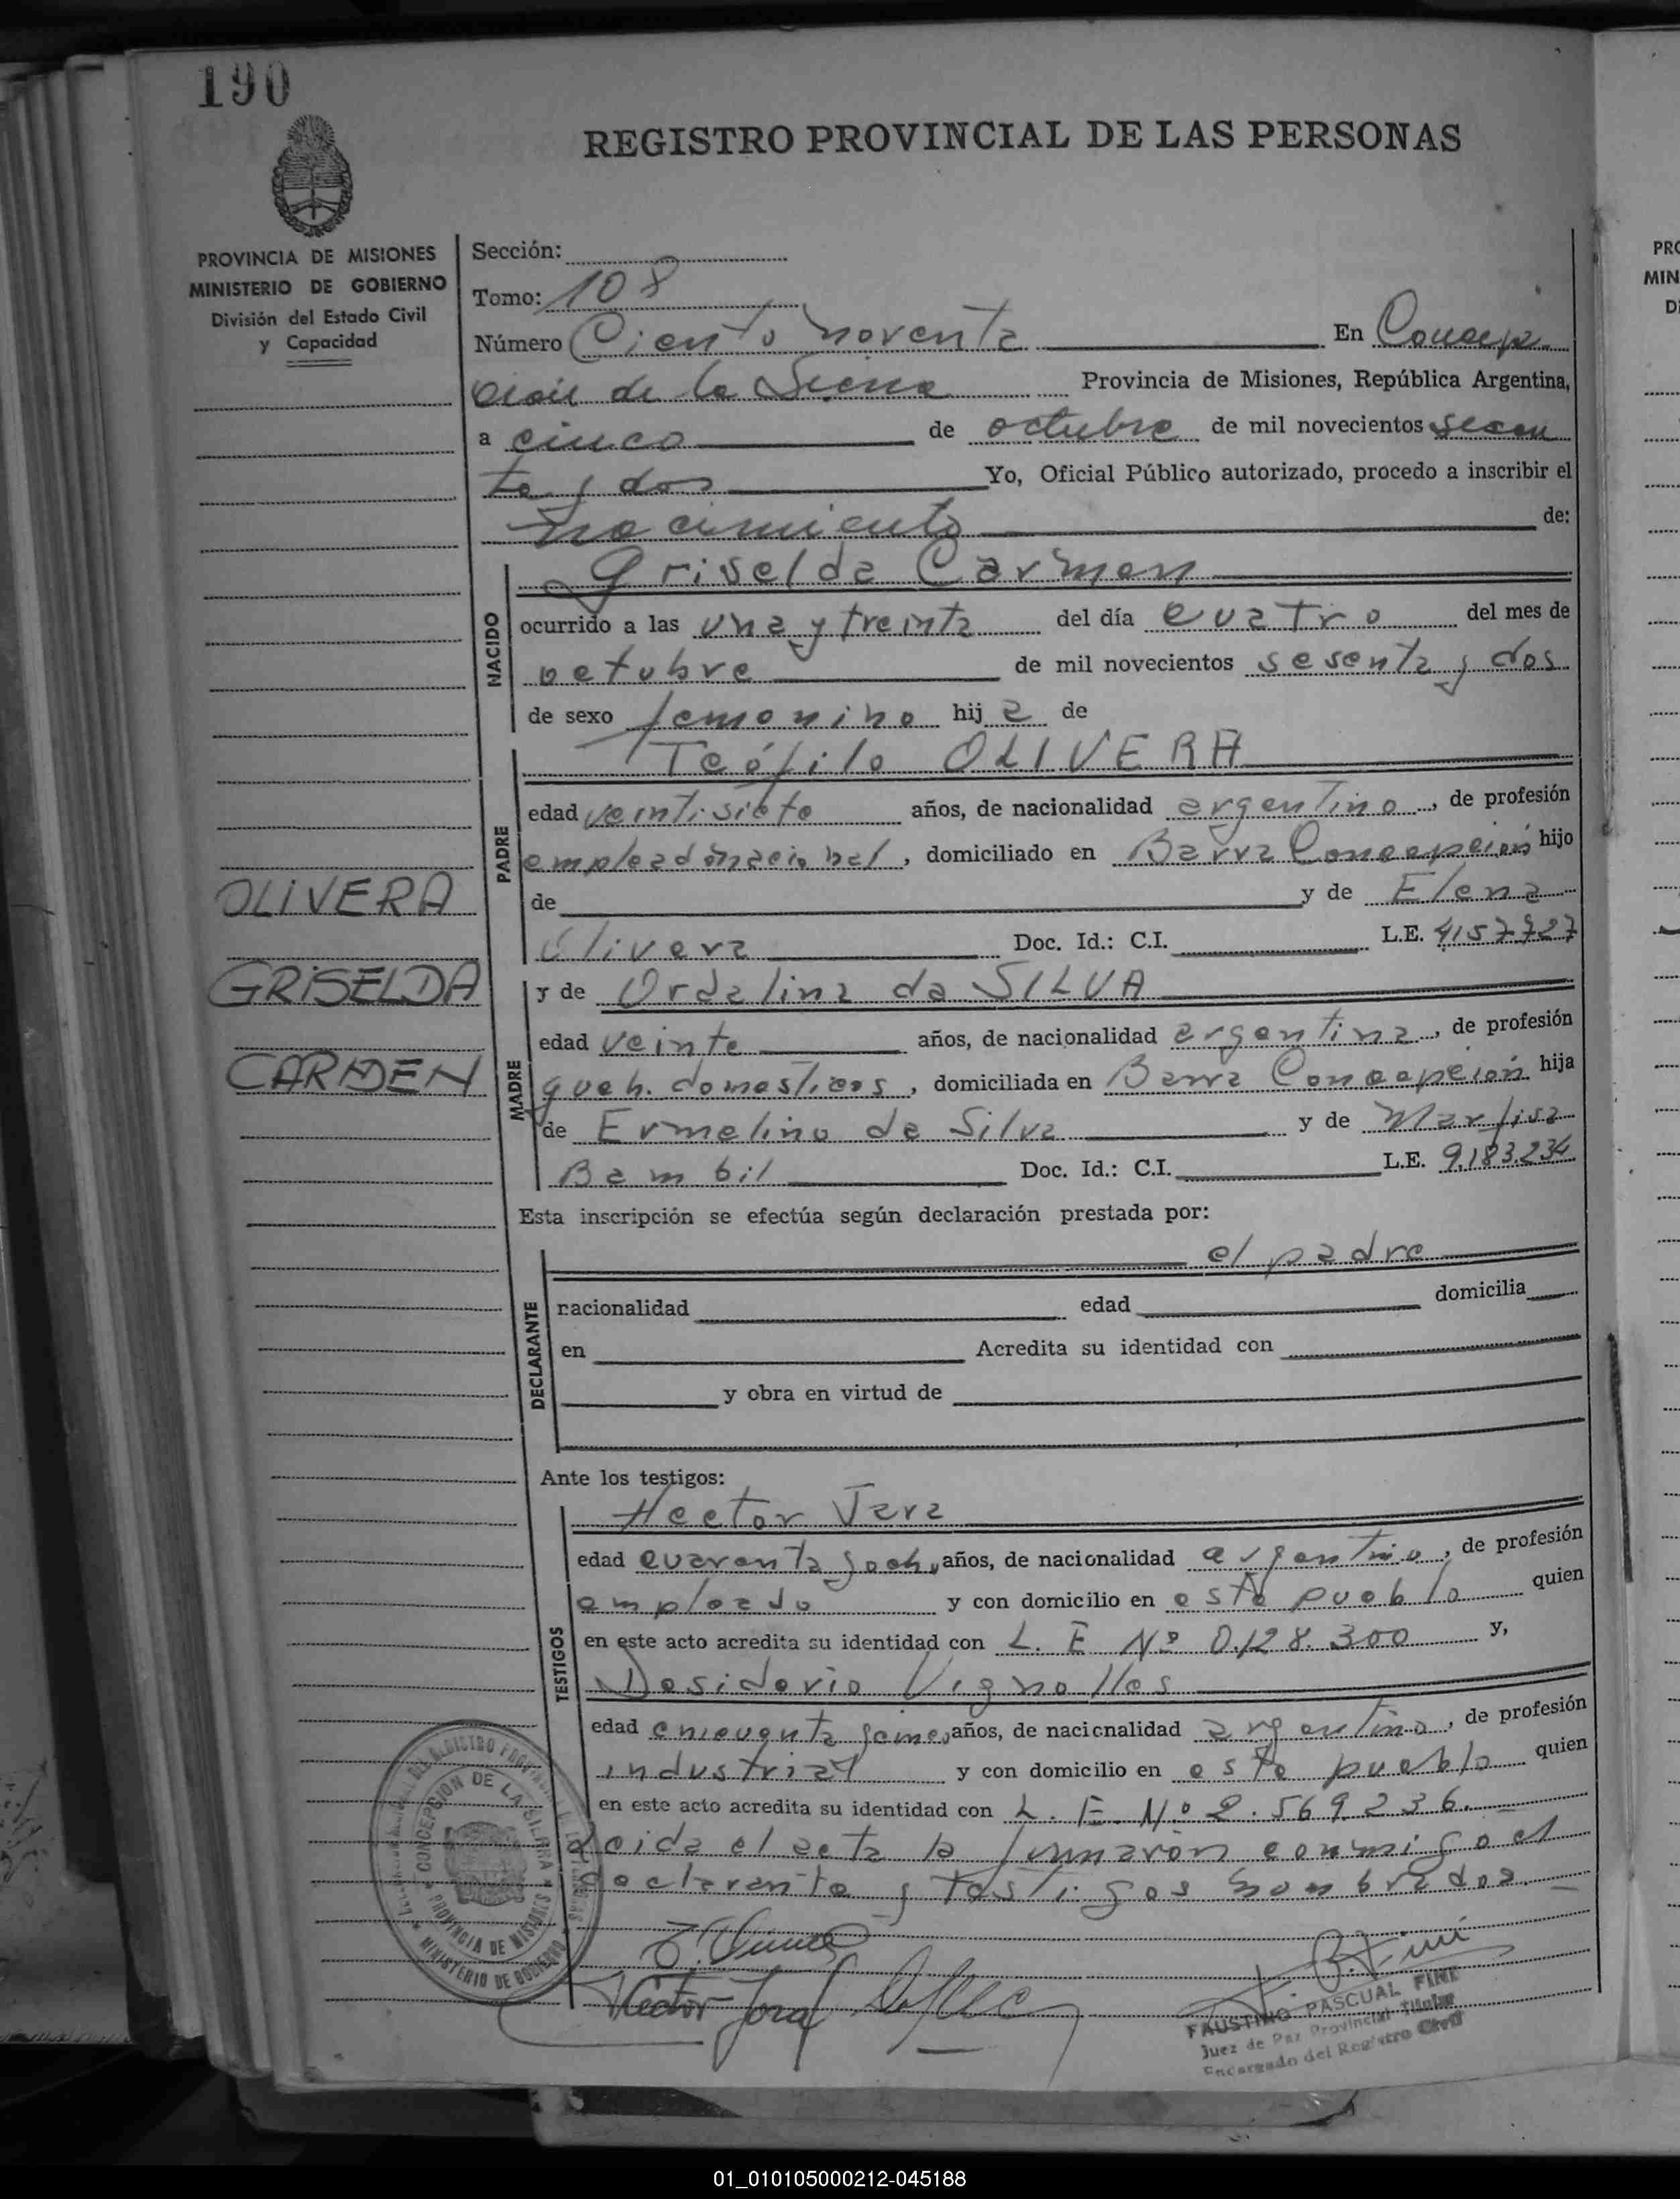 190
REGISTRO PROVINCIAL DE LAS PERSONAS
PROVINCIA DE MISIONES
MINISTERIO DE GOBIERNO
División del Estado Civil
y Capacidad
Sección:
Tomo: 108
Número Ciento noventa En Concep
ción de la Sierra Provincia de Misiones, República Argentina,
a cinco de octubre de mil novecientos sesen
ta y dos Yo, Oficial Público autorizado, procedo a inscribir el
nacimiento de:
NACIDO
Griselda Carmen
ocurrido a las una y treinta del día cuatro del mes de
octubre de mil novecientos sesenta y dos
de sexo femenino hija de
PADRE
Teófilo OLIVERA
edad veintisiete años, de nacionalidad argentino, de profesión
empleado nacional, domiciliado en Barra Concepción hijo
de y de Elena
Olivera Doc. Id.: C.I. L.E. 4157727
OLIVERA
GRISELDA
CARMEN
MADRE
y de Ordalina da SILVA
edad veinte años, de nacionalidad argentina, de profesión
queh. domesticos, domiciliada en Barra Concepción hija
de Ermelino da Silva y de Marfisa
Bambil Doc. Id.: C.I. L.E. 9.183.234
Esta inscripción se efectúa según declaración prestada por:
DECLARANTE
el padre
nacionalidad edad domicilia
en Acredita su identidad con
y obra en virtud de
Ante los testigos:
TESTIGOS
Hector Jara
edad cuarenta y ocho años, de nacionalidad argentino, de profesión
empleado y con domicilio en este pueblo quien
en este acto acredita su identidad con L. E. Nº 0.128.300 y,
Desiderio Vignolles
edad cincuenta y cinco años, de nacionalidad argentino, de profesión
industrial y con domicilio en este pueblo quien
en este acto acredita su identidad con L. E. Nº 2.569.236.
Leida el acta la firmaron conmigo el
declarante y testigos nombrados.
CONCEPCION DE LA SIERRA
PROVINCIA DE MISIONES
MINISTERIO DE GOBIERNO
Hector Jara
FAUSTINO PASCUAL FINI
Juez de Paz Provincial Titular
Encargado del Registro Civil
PRO
MIN
Di
01_010105000212-045188